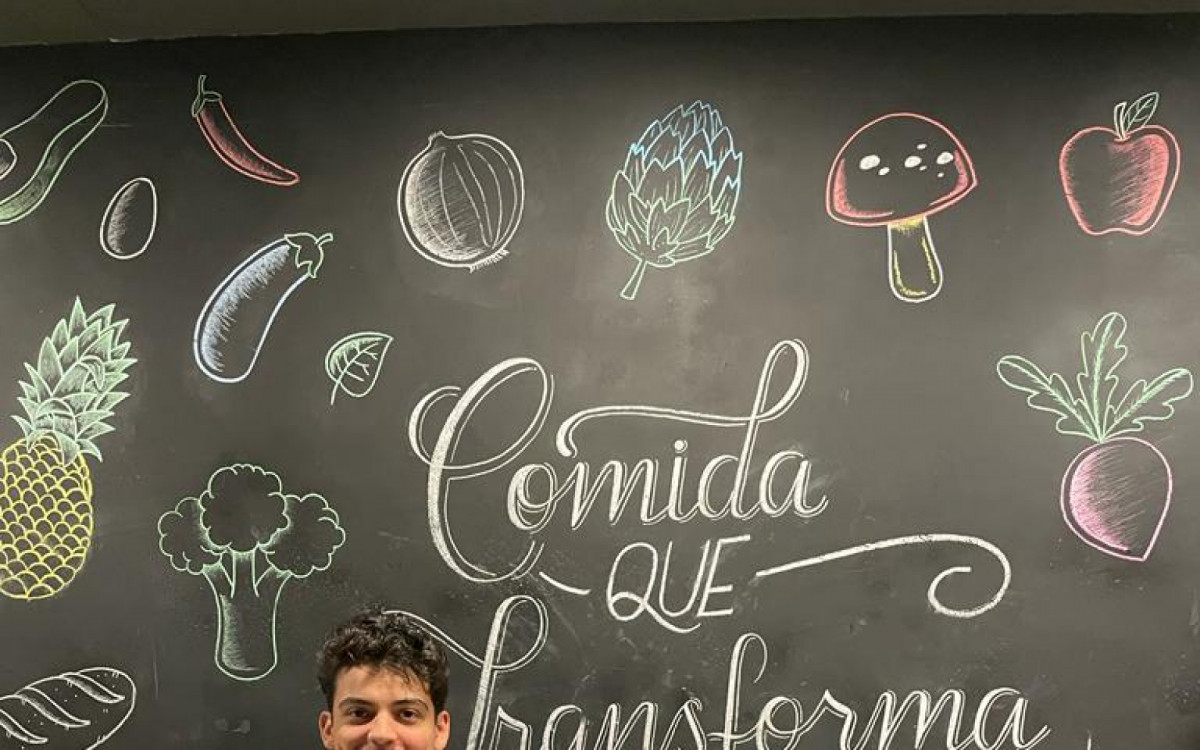 Comida
QUE
Transforma